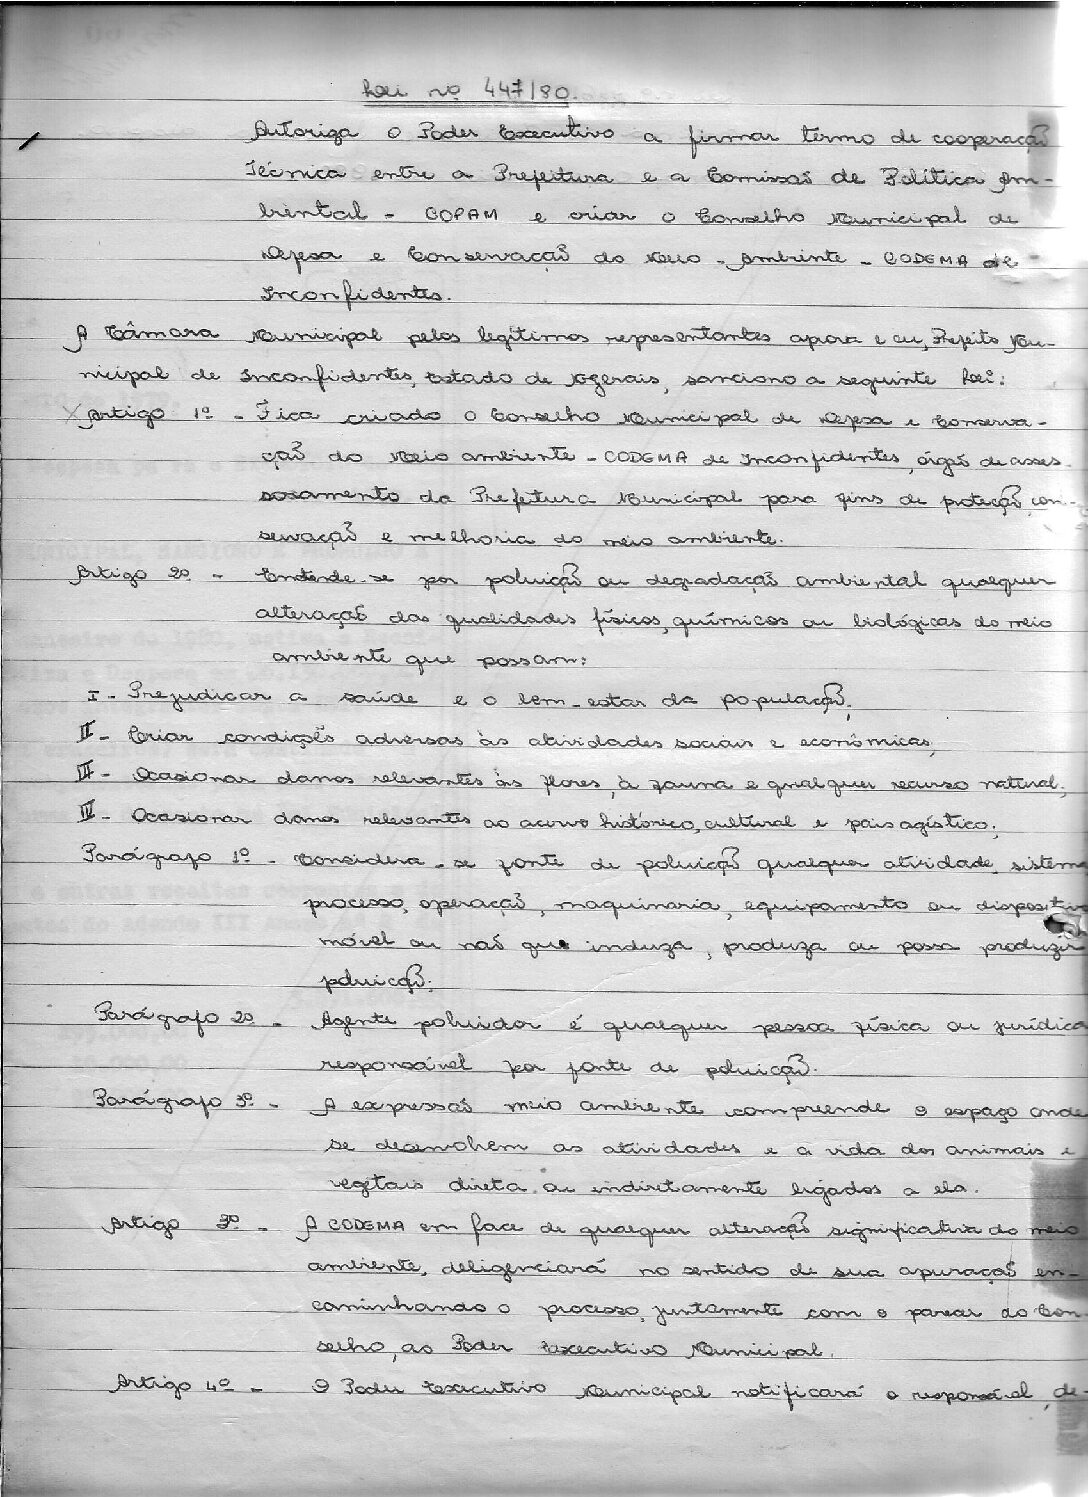 Lei nº 447/80.
Autoriza o Poder Executivo a firmar termo de cooperação
Técnica entre a Prefeitura e a Comissão de Política Am-
biental - COPAM e criar o Conselho Municipal de
Defesa e Conservação do Meio - Ambiente - CODEMA de
Inconfidentes.
A Câmara Municipal pelos legítimos representantes aprova e eu, Prefeito Mu-
nicipal de Inconfidentes, Estado de Mgerais, sanciono a seguinte Lei:
Artigo 1º - Fica criado o Conselho Municipal de Defesa e Conserva-
ção do Meio ambiente - CODEMA de Inconfidentes, órgão de asses-
soramento da Prefeitura Municipal para fins de proteção, con-
servação e melhoria do meio ambiente.
Artigo 2º - Entende-se por poluição ou degradação ambiental qualquer
alteração das qualidades físicas, químicas ou biológicas do meio
ambiente que possam:
I - Prejudicar a saúde e o bem-estar da população;
II - Criar condições adversas às atividades sociais e econômicas;
III - Ocasionar danos relevantes às flores, à fauna e qualquer recurso natural;
IV - Ocasionar danos relevantes ao acervo histórico, cultural e paisagístico;
Parágrafo 1º - Considera-se fonte de poluição qualquer atividade, sistema
processo, operação, maquinaria, equipamento ou dispositivo
móvel ou não que induza, produza ou possa produzir
poluição;
Parágrafo 2º - Agente poluidor é qualquer pessoa física ou jurídica
responsável por fonte de poluição.
Parágrafo 3º - A expressão meio ambiente compreende o espaço onde
se desenvolvem as atividades e a vida dos animais e
vegetais direta ou indiretamente ligados a ela.
Artigo 3º - A CODEMA em face de qualquer alteração significativa do meio
ambiente, deligenciará no sentido de sua apuração en-
caminhando o processo, juntamente com o parear do Con-
selho, ao Poder Executivo Municipal.
Artigo 4º - O Poder Executivo Municipal notificará o responsável, de-